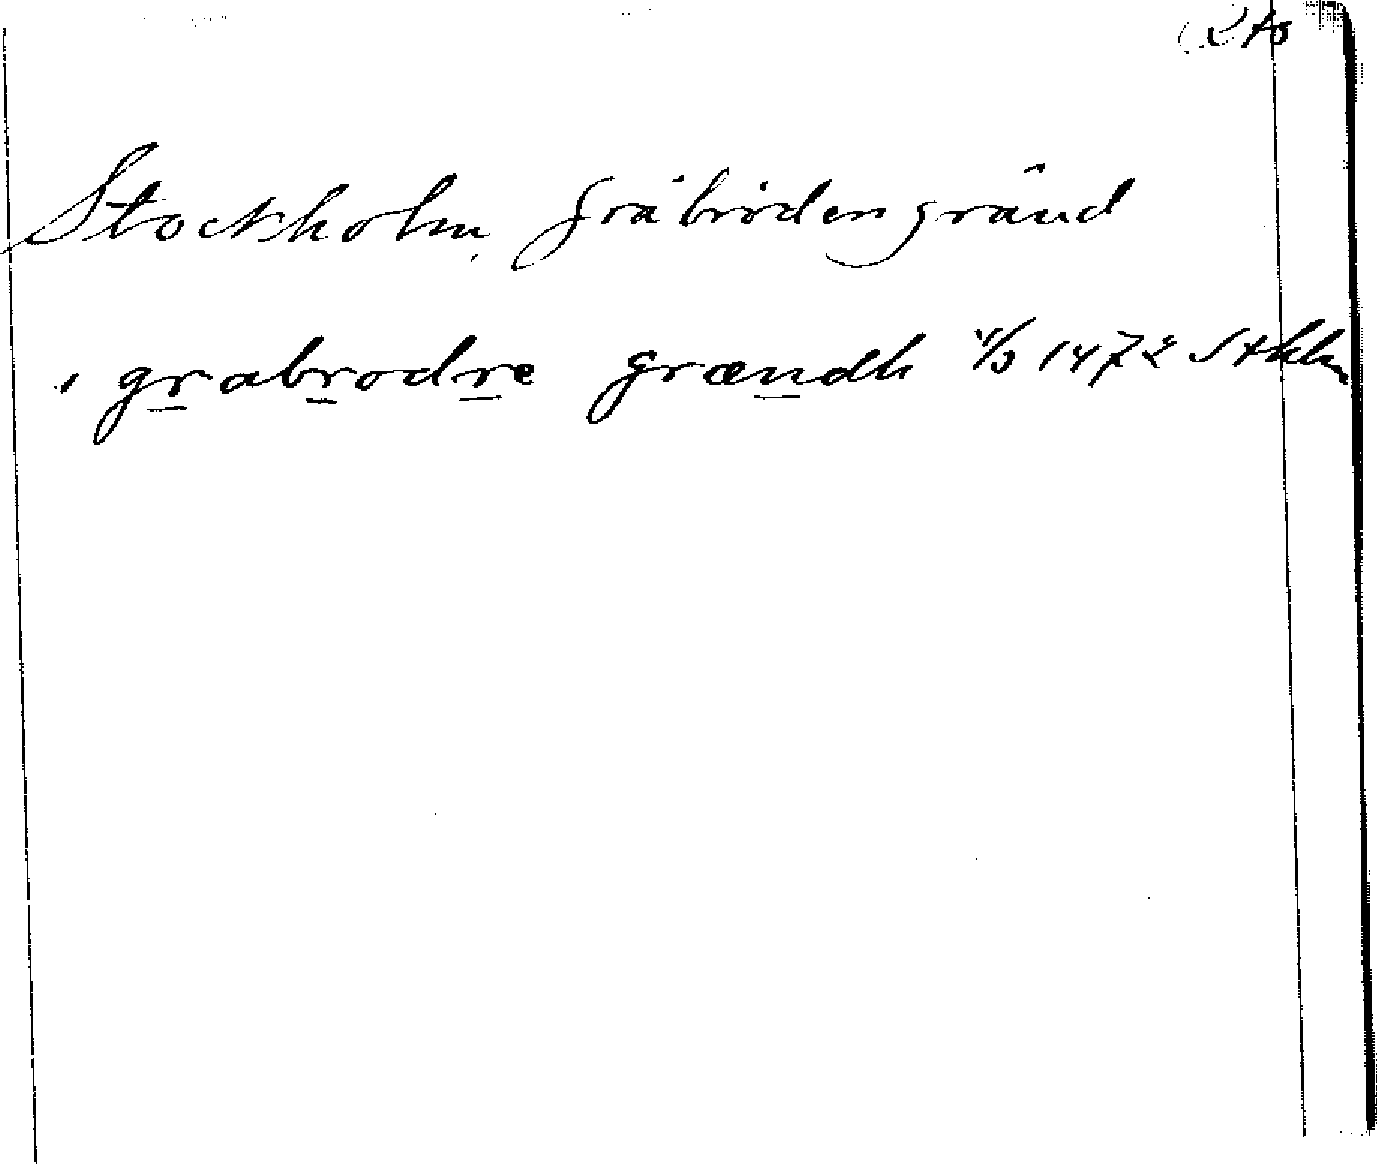 Stockholm, gråbrödersgränd
i grabrodre grændh 4/3 1472 Sthlm